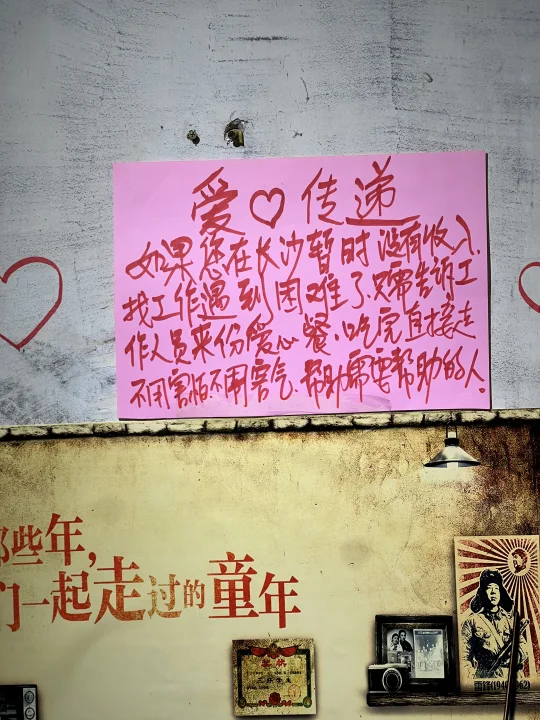 爱♡传递
如果您在长沙暂时没有收入.
找工作遇到困难了.只需告诉工
作人员来份爱心餐.吃完直接走
不用害怕.不用客气.帮助需要帮助的人.
那些年,
们一起走过的童年
奖状
雷锋(1940-1962)